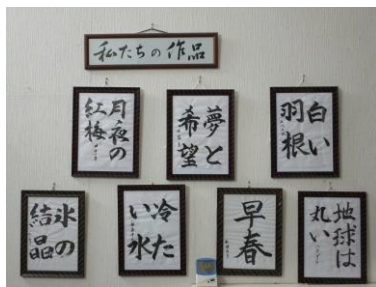 私たちの作品
月夜の
紅梅
夢と
希望
白い
羽根
氷の
結晶
冷た
い水
早春
地球は
丸い